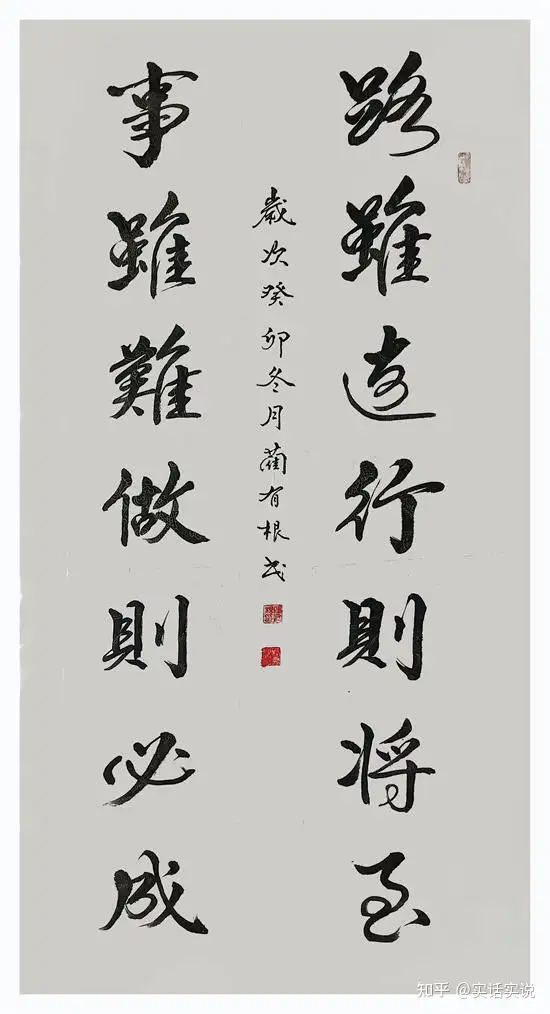 路雖遠行則将至
歲次癸卯冬月藺有根书
事雖難做則必成
知乎 @实话实说